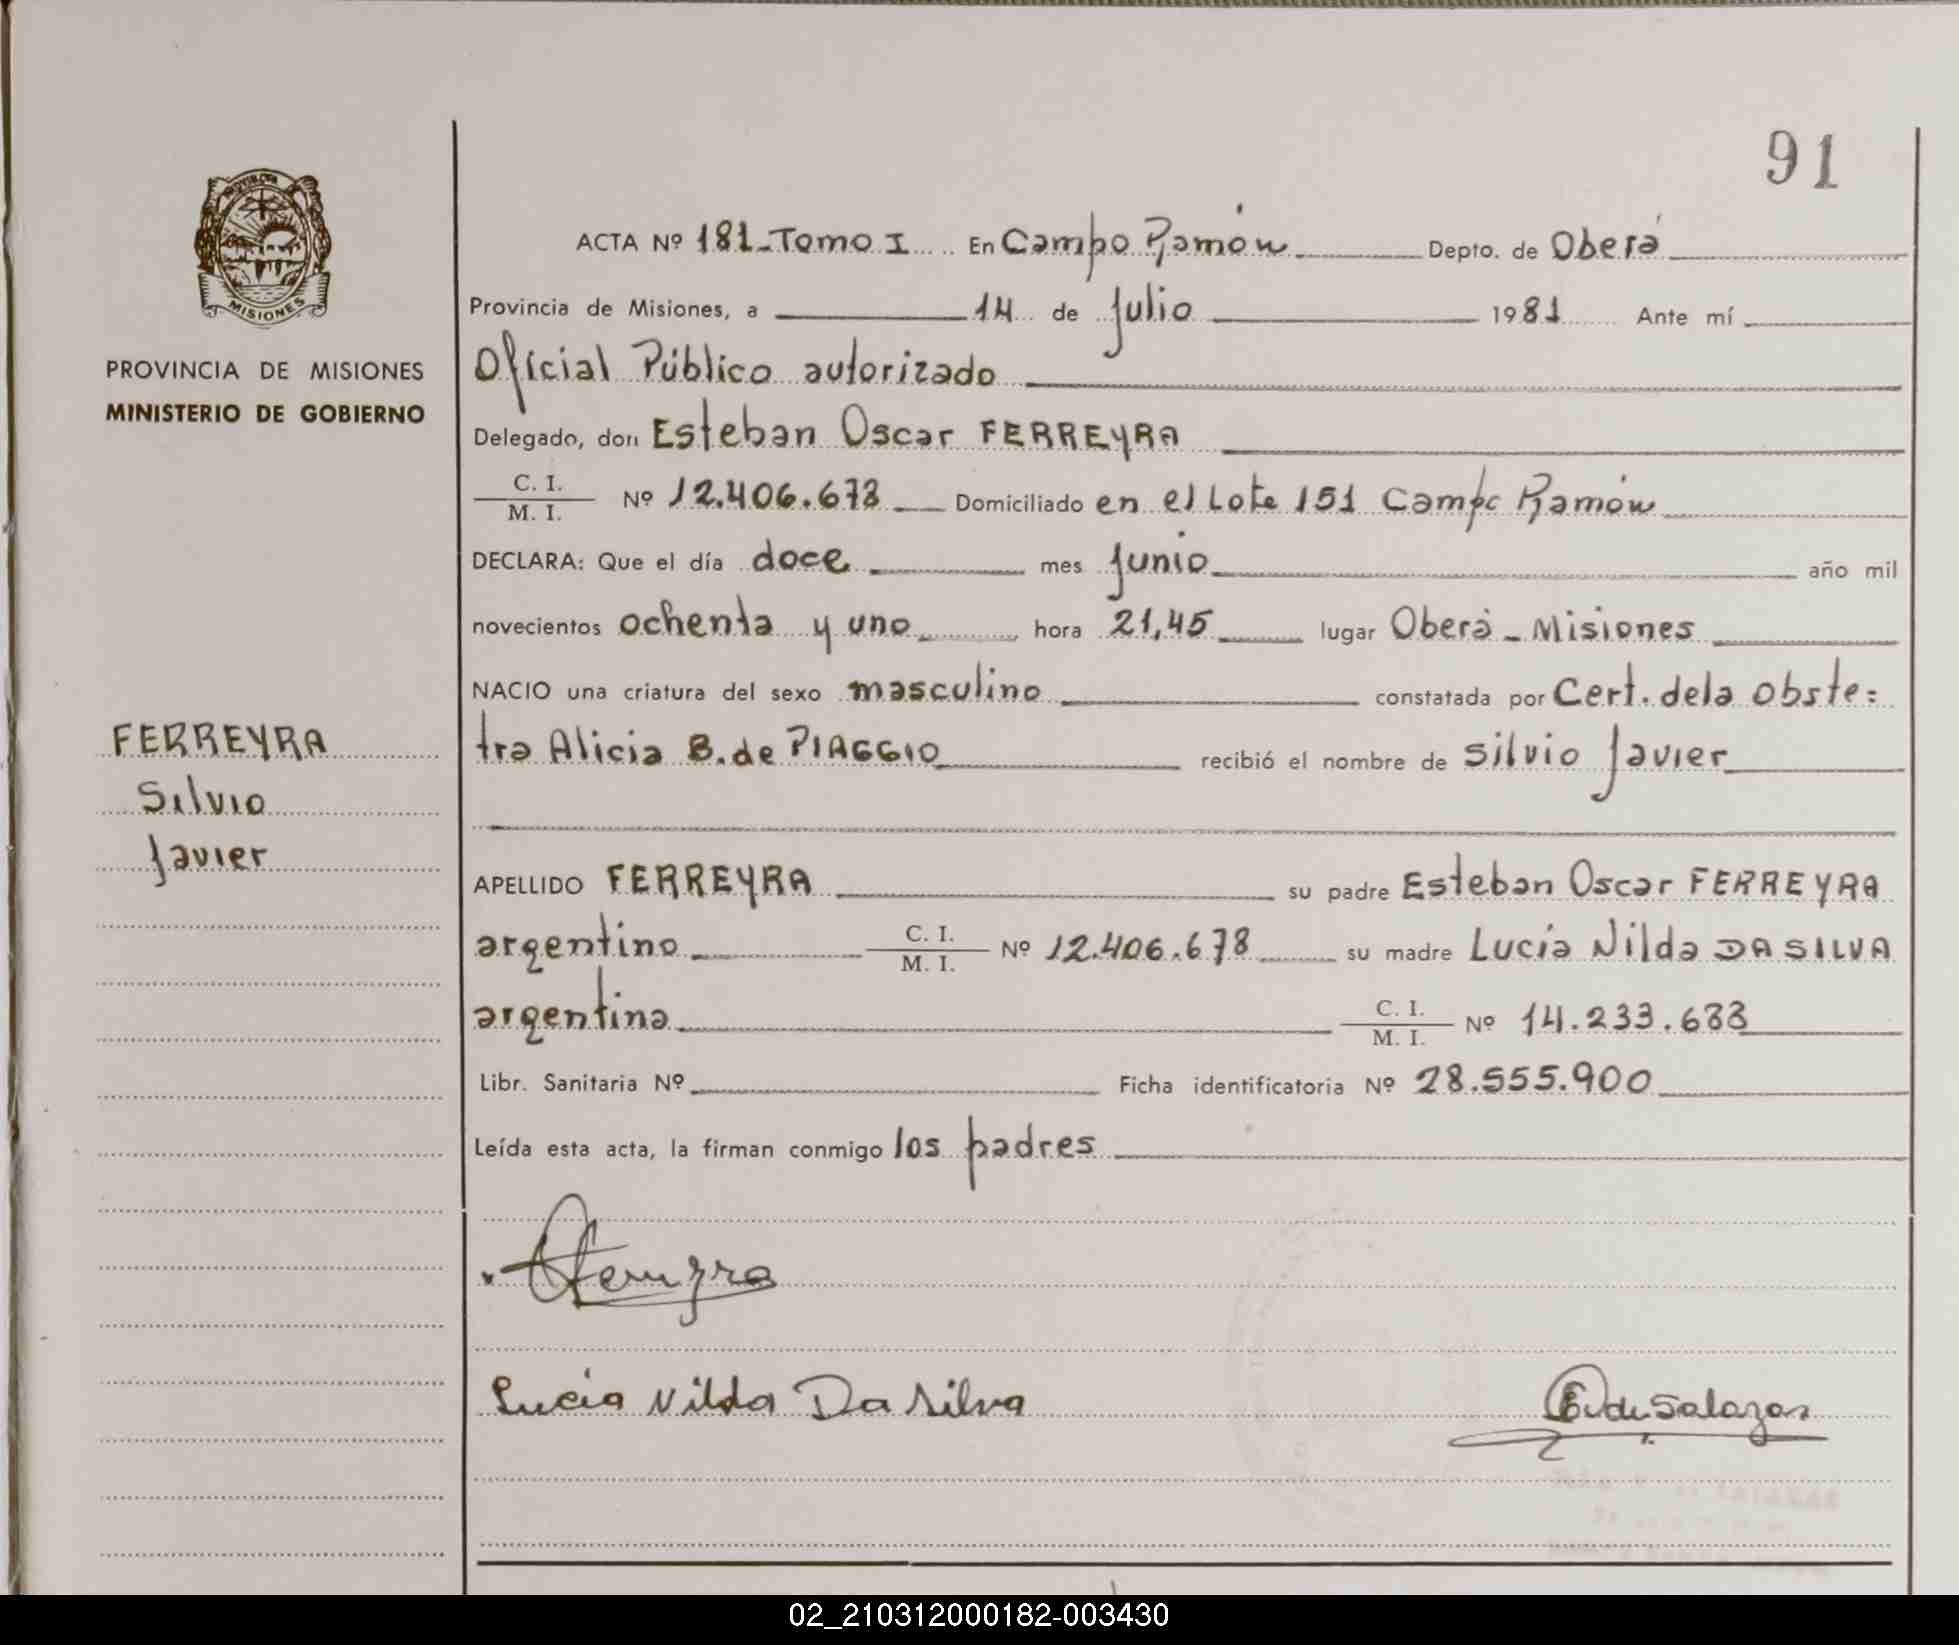 91
PROVINCIA
MISIONES
PROVINCIA DE MISIONES
MINISTERIO DE GOBIERNO
FERREYRA
Silvio
Javier
ACTA Nº 181-Tomo I En Campo Ramón Depto. de Oberá
Provincia de Misiones, a 14 de Julio 1981 Ante mí
Oficial Público autorizado
Delegado, don Esteban Oscar FERREYRA
C. I. / M. I. Nº 12.406.678 Domiciliado en el Lote 151 Campo Ramón
DECLARA: Que el día doce mes Junio año mil
novecientos ochenta y uno hora 21,45 lugar Oberá - Misiones
NACIO una criatura del sexo masculino constatada por Cert. dela obste=
tra Alicia B. de PIAGGIO recibió el nombre de Silvio Javier
APELLIDO FERREYRA su padre Esteban Oscar FERREYRA
argentino C. I. / M. I. Nº 12.406.678 su madre Lucía Nilda DA SILVA
argentina C. I. / M. I. Nº 14.233.683
Libr. Sanitaria Nº Ficha identificatoria Nº 28.555.900
Leída esta acta, la firman conmigo los padres
Ferreyra
Lucia Nilda Da Silva
de Salazar
02_210312000182-003430